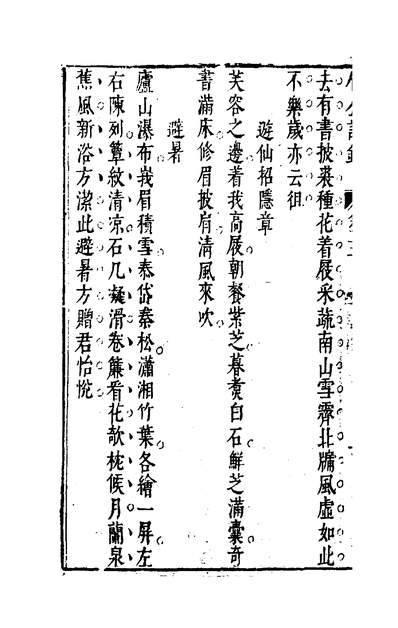 去有書披裘種花着屐采蔬南山雪霽北牖風虛如此
不樂歲亦云徂
遊仙招隱章
芙容之邊着我高屐朝餐紫芝暮煑白石鮮芝滿囊奇
書滿床修眉披肩清風來吹
避暑
廬山瀑布峩眉積雪泰岱秦松瀟湘竹葉各繪一屏左
右陳列簟紋清凉石几凝滑卷簾看花欹枕候月蘭泉
蕉風新浴方潔此避暑方贈君怡悅